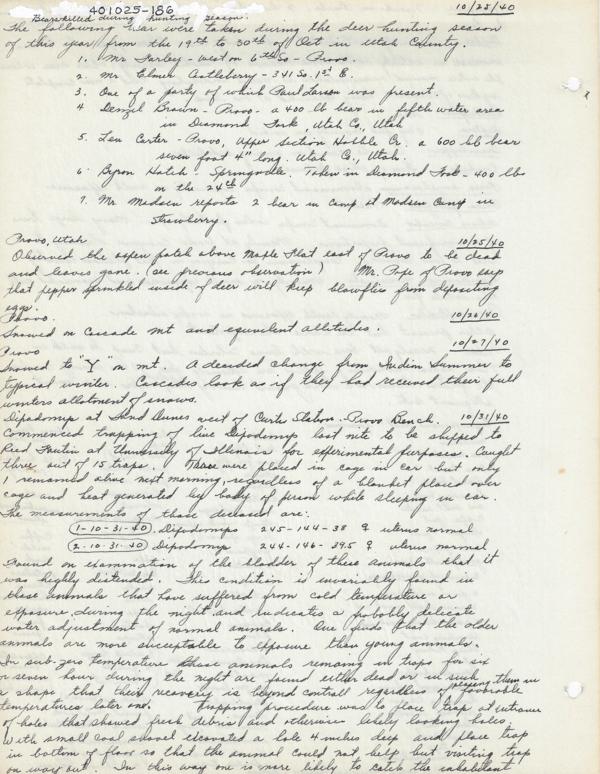 401025-186
10/25/40
Bears killed during hunting season.
The following bear were taken during the deer hunting season
of this year from the 19th to 30th of Oct in Utah County.
1. Mr Farley - West on 6th So - Provo.
2. Mr. Elmer Castleberry - 341 So. 1st E.
3. One of a party of which Paul Larson was present.
4 Denzil Brown - Provo - a 400 lb bear in fifth water area
in Diamond Fork, Utah Co., Utah
5. Len Carter - Provo, Upper section Hobble Cr. a 600 lb bear
seven foot 4" long. Utah Co., Utah.
6. Byron Hatch - Springville. Taken in Diamond Fork - 400 lbs
on the 24th
7. Mr Madsen reports 2 bear in camp at Madsen Camp in
Strawberry.
Provo, Utah 10/25/40
Observed the aspen patch above Maple Flat east of Provo to be dead
and leaves gone. (see previous observation) Mr. Pope of Provo says
that pepper sprinkled inside of deer will keep blowflies from depositing
eggs.
Provo. 10/26/40
Snowed on Cascade mt and equivelent altitudes.
Provo 10/27/40
Snowed to "Y" on mt. A decided change from Indian Summer to
typical winter. Cascades look as if they had received their full
winters allotment of snows.
Dipodomys at Sand Dunes west of Curtis Station - Provo Bench. 10/31/40
Commenced trapping of live Dipodomys last nite to be shipped to
Reed Fautin at University of Illinois for experimental purposes. Caught
three out of 15 traps. These were placed in cage in car but only
1 remained alive next morning, regardless of a blanket placed over
cage and heat generated by body of person while sleeping in car.
The measurements of those deceased are:
1-10-31-40 Dipodomys 245-144-38 ♀ uterus normal
2-10-31-40 Dipodomys 244-146-39.5 ♀ uterus normal
Found on examination of the bladder of these animals that it
was highly distended. This condition is invariably found in
those animals that have suffered from cold temperature or
exposure during the night and indicates a probably delicate
water adjustment of normal animals. One finds that the older
animals are more susceptable to exposure than young animals.
In sub-zero temperature those animals remaing in traps for six
or seven hour during the night are found either dead or in such
a shape that their recovery is beyond controll regardless of placing them in favorable
temperatures later on. Trapping procedure was to place trap at entrance
of holes that showed fresh debris and otherwise likely looking holes.
With small coal shovel excavated a hole 4 inches deep and place trap
in bottom of floor so that the animal could not help but visiting trap
on way out. In this way one is more likely to catch the inhabitant